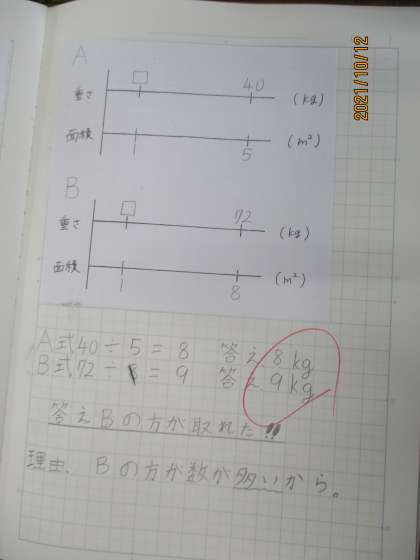 2021/10/12
A
□ 40
重さ (kg)
面積 (m²)
1 5
B
□ 72
重さ (kg)
面積 (m²)
1 8
A式40÷5=8 答え8kg
B式72÷8=9 答え9kg
答えBの方が取れた!!
理由、Bの方が数が多いから。